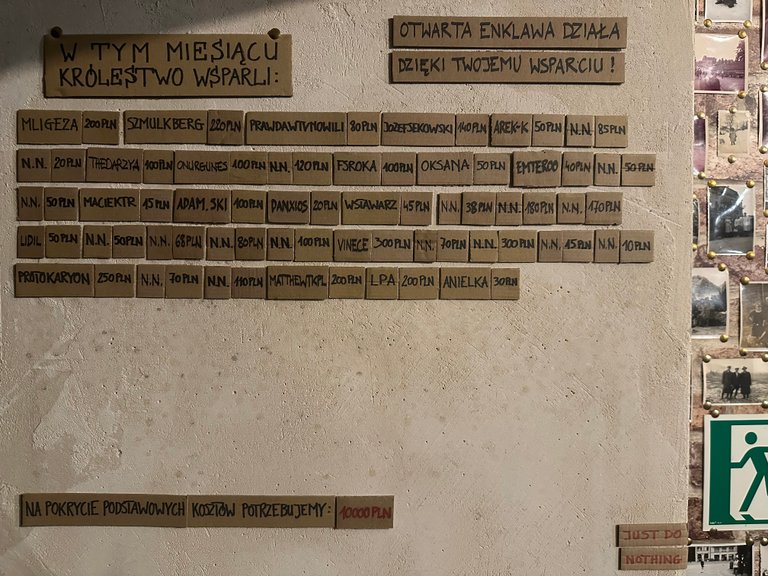 W TYM MIESIĄCU
KRÓLESTWO WSPARLI:
OTWARTA ENKLAWA DZIAŁA
DZIĘKI TWOJEMU WSPARCIU!
MLIGEZA 200 PLN SZMULKBERG 220 PLN PRAWDAWTVNOWILI 80 PLN JOZEFSEKOWSKI 140 PLN AREK-K 50 PLN N.N. 85 PLN
N.N. 20 PLN THEDARZYA 100 PLN ONURGUNES 100 PLN N.N. 120 PLN FSROKA 100 PLN OKSANA 50 PLN EMTEROO 40 PLN N.N. 50 PLN
N.N. 50 PLN MACIEKTR 15 PLN ADAM.SKI 100 PLN DANXIOS 20 PLN WSTAWARZ 45 PLN N.N. 38 PLN N.N. 180 PLN N.N. 170 PLN
LIDIL 50 PLN N.N. 50 PLN N.N. 68 PLN N.N. 80 PLN N.N. 100 PLN VINECE 300 PLN N.N. 70 PLN N.N. 300 PLN N.N. 15 PLN N.N. 10 PLN
PROTOKARYON 250 PLN N.N. 70 PLN N.N. 110 PLN MATTHEWTKPL 200 PLN LPA 200 PLN ANIELKA 30 PLN
NA POKRYCIE PODSTAWOWYCH KOSZTÓW POTRZEBUJEMY: 10000 PLN
JUST DO
NOTHING